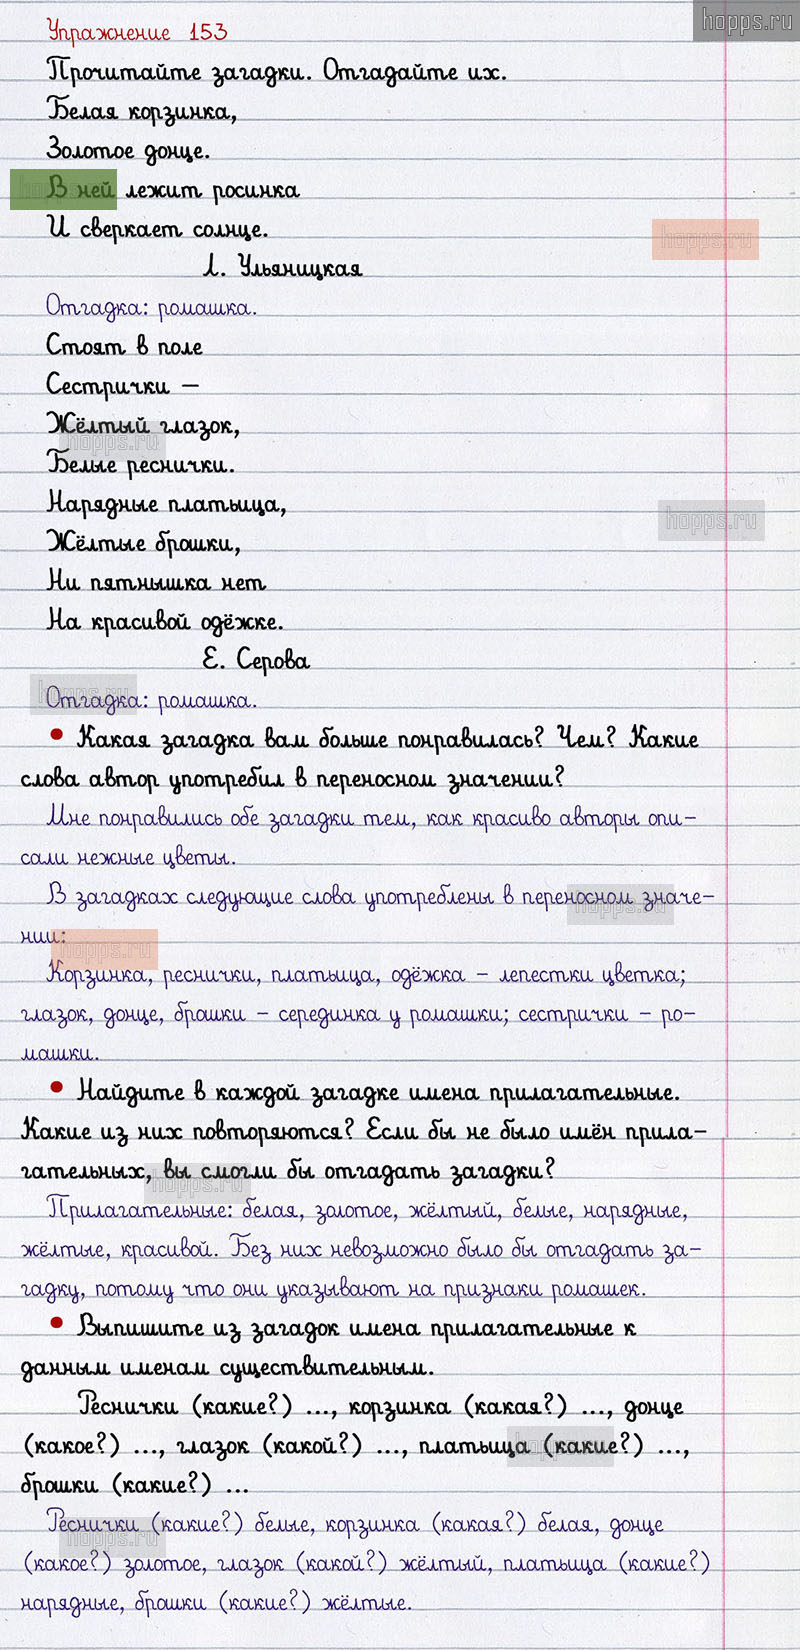 hopps.ru
Упражнение 153
Прочитайте загадки. Отгадайте их.
Белая корзинка,
Золотое донце.
В ней лежит росинка
И сверкает солнце.
hopps.ru
Л. Ульяницкая
Отгадка: ромашка.
Стоят в поле
Сестрички –
Жёлтый глазок,
hopps.ru
Белые реснички.
Нарядные платьица,
hopps.ru
Жёлтые брошки,
Ни пятнышка нет
На красивой одёжке.
Е. Серова
hopps.ru
Отгадка: ромашка.
• Какая загадка вам больше понравилась? Чем? Какие
слова автор употребил в переносном значении?
Мне понравились обе загадки тем, как красиво авторы опи-
сали нежные цветы.
В загадках следующие слова употреблены в переносном значе-
hopps.ru
нии:
hopps.ru
Корзинка, реснички, платьица, одёжка – лепестки цветка;
глазок, донце, брошки – серединка у ромашки; сестрички – ро-
машки.
• Найдите в каждой загадке имена прилагательные.
Какие из них повторяются? Если бы не было имён прила-
гательных, вы смогли бы отгадать загадки?
hopps.ru
Прилагательные: белая, золотое, жёлтый, белые, нарядные,
жёлтые, красивой. Без них невозможно было бы отгадать за-
гадку, потому что они указывают на признаки ромашек.
• Выпишите из загадок имена прилагательные к
данным именам существительным.
Реснички (какие?) ..., корзинка (какая?) ..., донце
(какое?) ..., глазок (какой?) ..., платьица (какие?) ...,
hopps.ru
брошки (какие?) ...
Реснички (какие?) белые, корзинка (какая?) белая, донце
hopps.ru
(какое?) золотое, глазок (какой?) жёлтый, платьица (какие?)
нарядные, брошки (какие?) жёлтые.